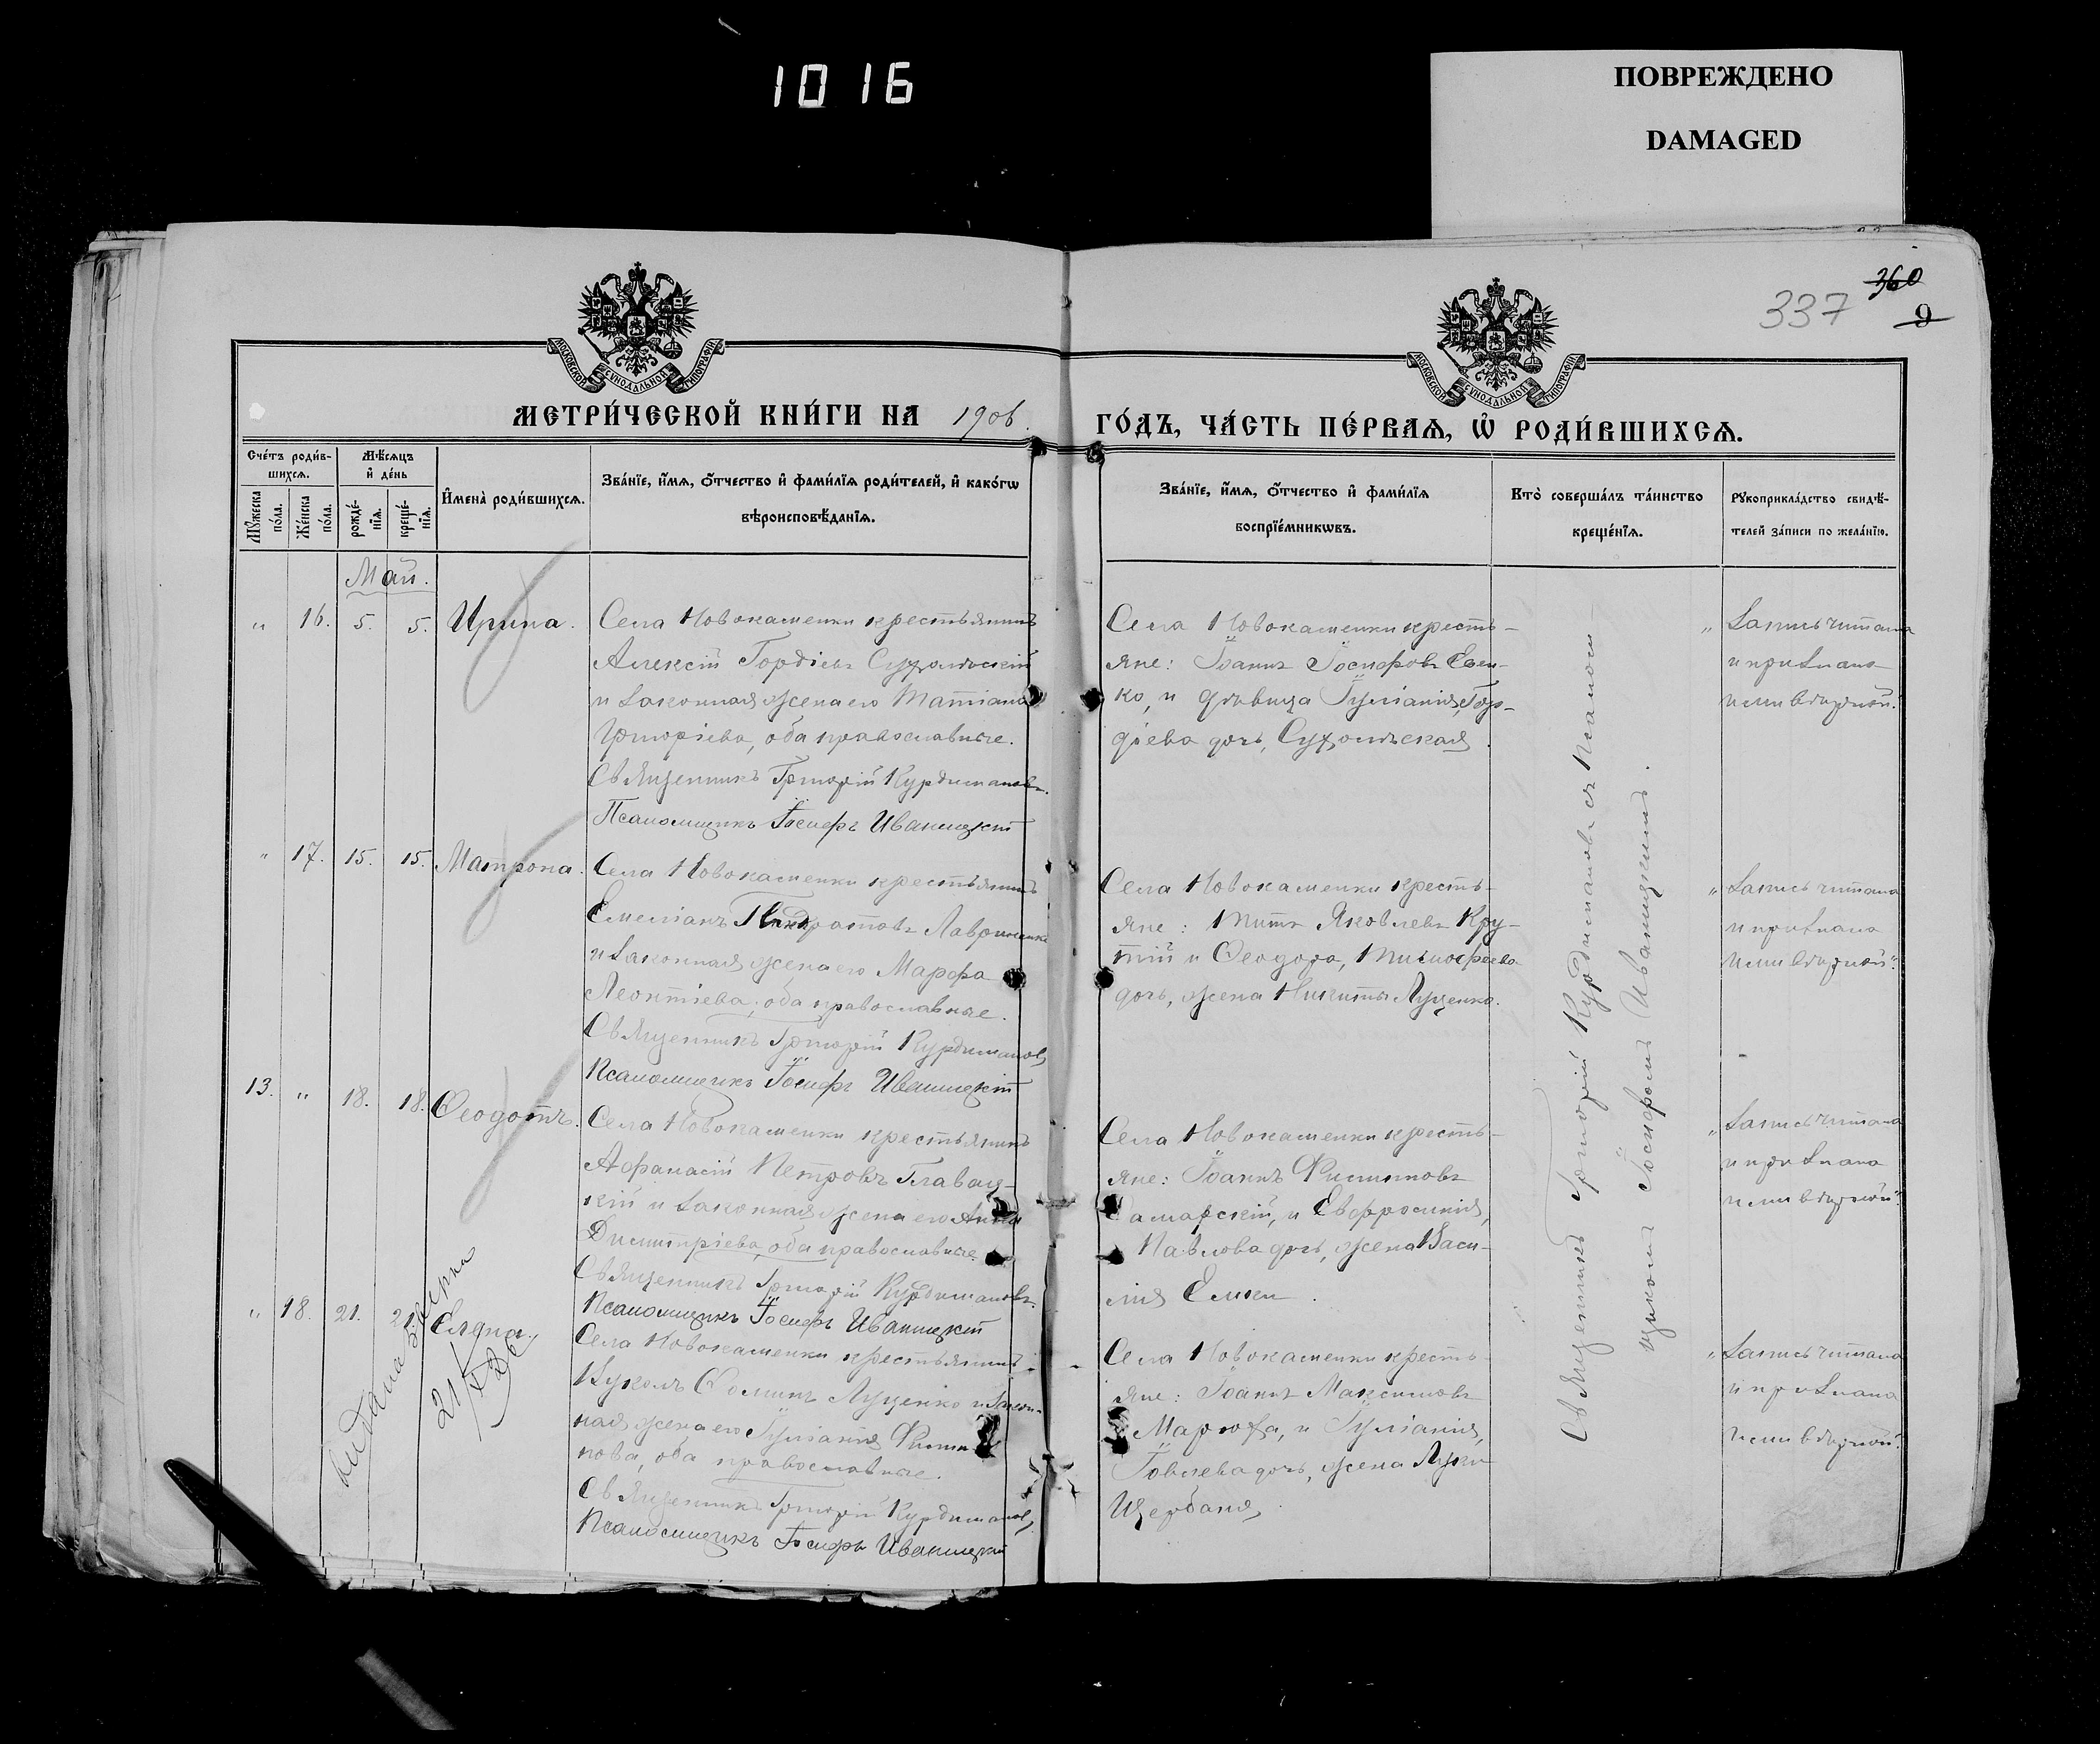 10 16
ПОВРЕЖДЕНО
DAMAGED
360
337
9
МОСКОВСКОЙ СѴНОДАЛЬНОЙ ТИПОГРАФІИ
МОСКОВСКОЙ СѴНОДАЛЬНОЙ ТИПОГРАФІИ
МЕТРИ́ЧЕСКОЙ КНИ́ГИ НА 1906.
ГО́ДЪ, ЧА́СТЬ ПЕ́РВАЯ, Ѿ РОДИ́ВШИХСЯ.
Сче́тъ роди́в-
шихся.
Мѣ́сяцъ
и҆ де́нь
Мꙋ́жеска
по́ла.
Же́нска
по́ла.
рожде́-
нїя.
креще́-
нїя.
И҆мена̀ роди́вшихся.
Зва́нїе, и҆́мя, ѻ҆́тчество и҆ фами́лїя роди́телей, и҆ како́гѡ
вѣроисповѣ́данїя.
Зва́нїе, и҆́мя, ѻ҆́тчество и҆ фами́лїя
воспрїе́мникѡвъ.
Кто̀ соверша́лъ та́инство
креще́нїя.
Рꙋкоприкла́дство свидѣ́-
телей за́писи по жела́нїю.
Май.
" 16. 5. 5. Ирина.
Села Новокаменки крестьянинъ
Алексій Гордіевъ Сухомъскій
и законная жена его Татіана
Григоріева, оба православные.
Священникъ Григорій Курдимановъ.
Псаломщикъ Іосифъ Иваницкій
Села Новокаменки кресть-
яне: Іоаннъ Іосифовъ
ко, и дѣвица Іуліанія, Гор-
діева дочь, Сухомъская.
„Запись читана
и признана
ими вѣрной".
" 17. 15. 15. Матрона.
Села Новокаменки крестьянинъ
Емеліанъ
и законная жена его Марфа
Леонтіева, оба православные.
Священникъ Григорій Курдимановъ
Псаломщикъ Іосифъ Иваницкій
Села Новокаменки кресть-
яне: Титъ Яковлевъ Кру-
тій и Ѳеодора, Тимофеева
дочь, жена Никиты Луценко.
„Запись читана
и признана
ими вѣрной".
13. " 18. 18. Ѳеодотъ.
Села Новокаменки крестьянинъ
Аѳанасій Петровъ Главац-
кій и законная жена его Анна
Димитріева, оба православные.
Священникъ Григорій Курдимановъ.
Псаломщикъ Іосифъ Иваницкій
Села Новокаменки кресть-
яне: Іоаннъ Филипповъ
Самарскій, и Евфросинія,
Павлова дочь, жена Васи-
лія
„Запись читана
и признана
ими вѣрной".
" 18. 21. 21. Елена.
Села Новокаменки крестьянинъ
Вуколъ Ѳоминъ Луценко и закон-
ная жена его Іуліанія Филип-
пова, оба православные.
Священникъ Григорій Курдимановъ,
Псаломщикъ Іосифъ Иваницкій
Села Новокаменки кресть-
яне: Іоаннъ Максимовъ
и Іуліанія,
Іовлева дочь, жена Луки
Щербаня,
„Запись читана
и признана
ими вѣрной".
Священникъ Григорій Курдимановъ съ Псалом-
щикомъ Іосифомъ Иваницкимъ.